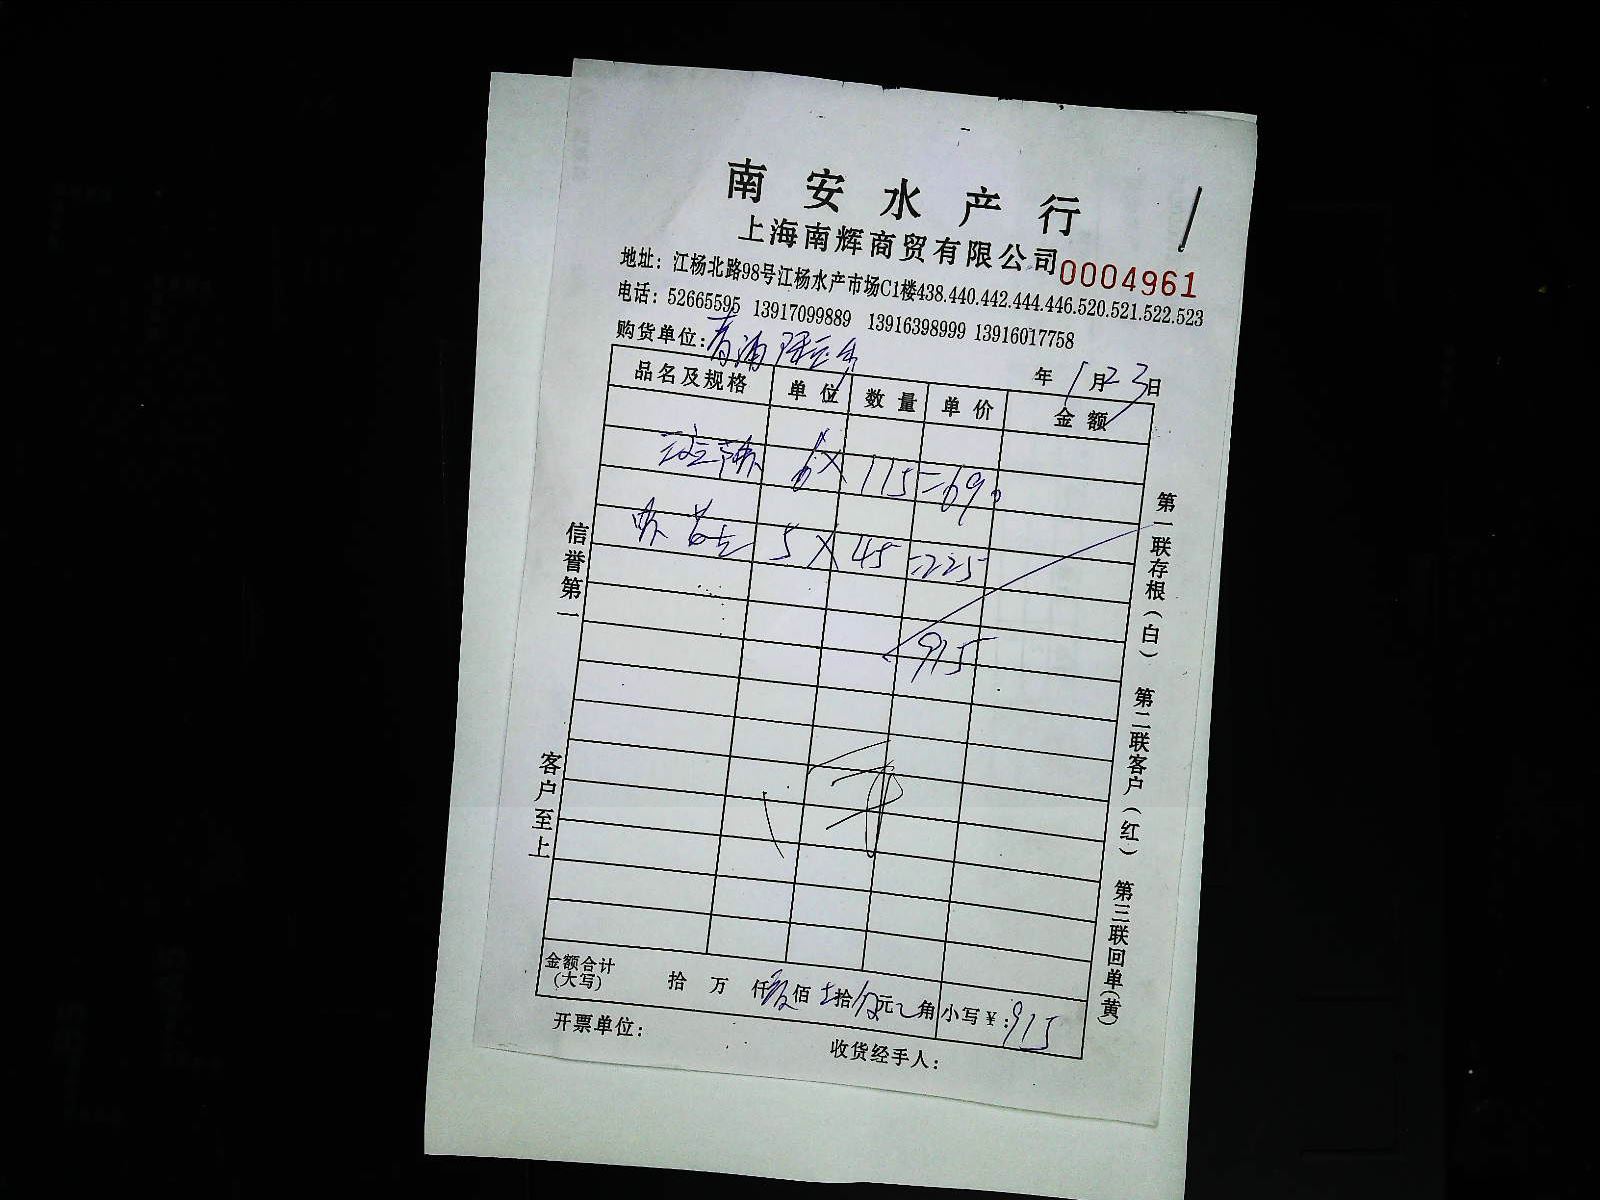 南安水产行
上海南辉商贸有限公司 0004961
地址：江杨北路98号江杨水产市场C1楼438.440.442.444.446.520.521.522.523
电话：52665595 13917099889 13916398999 13916017758
购货单位：青浦
年 1月23日
品名及规格 单位 数量 单价 金额
6×115=690
5×45=225
915
金额合计(大写) 拾 万 仟 佰 拾 元 角 小写￥：915
开票单位：
收货经手人：
信誉第一
客户至上
第一联存根（白） 第二联客户（红） 第三联回单（黄）